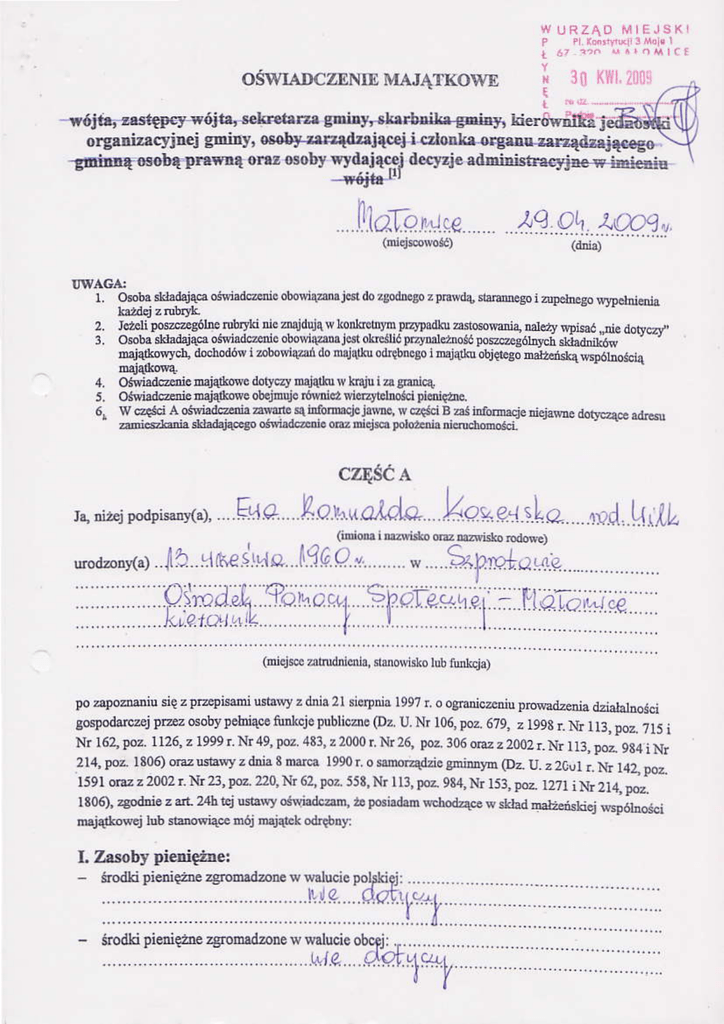 WPŁYNĘŁO
URZĄD MIEJSKI
Pl. Konstytucji 3 Maja 1
67-320 MAŁOMICE
30 KWI. 2009
nr dz.
OŚWIADCZENIE MAJĄTKOWE
wójta, zastępcy wójta, sekretarza gminy, skarbnika gminy, kierownika jednostki
organizacyjnej gminy, osoby zarządzającej i członka organu zarządzającego
gminną osobą prawną oraz osoby wydającej decyzje administracyjne w imieniu
wójta [1]
Małomice 29.04.2009r.
(miejscowość) (dnia)
UWAGA:
1. Osoba składająca oświadczenie obowiązana jest do zgodnego z prawdą, starannego i zupełnego wypełnienia
każdej z rubryk.
2. Jeżeli poszczególne rubryki nie znajdują w konkretnym przypadku zastosowania, należy wpisać „nie dotyczy”
3. Osoba składająca oświadczenie obowiązana jest określić przynależność poszczególnych składników
majątkowych, dochodów i zobowiązań do majątku odrębnego i majątku objętego małżeńską wspólnością
majątkową.
4. Oświadczenie majątkowe dotyczy majątku w kraju i za granicą.
5. Oświadczenie majątkowe obejmuje również wierzytelności pieniężne.
6. W części A oświadczenia zawarte są informacje jawne, w części B zaś informacje niejawne dotyczące adresu
zamieszkania składającego oświadczenie oraz miejsca położenia nieruchomości.
CZĘŚĆ A
Ja, niżej podpisany(a), Ewa Romualda Koszewska rod. Wilk
(imiona i nazwisko oraz nazwisko rodowe)
urodzony(a) 13 września 1960 r. w Szprotawie
Ośrodek Pomocy Społecznej – Małomice
kierownik
(miejsce zatrudnienia, stanowisko lub funkcja)
po zapoznaniu się z przepisami ustawy z dnia 21 sierpnia 1997 r. o ograniczeniu prowadzenia działalności
gospodarczej przez osoby pełniące funkcje publiczne (Dz. U. Nr 106, poz. 679, z 1998 r. Nr 113, poz. 715 i
Nr 162, poz. 1126, z 1999 r. Nr 49, poz. 483, z 2000 r. Nr 26, poz. 306 oraz z 2002 r. Nr 113, poz. 984 i Nr
214, poz. 1806) oraz ustawy z dnia 8 marca 1990 r. o samorządzie gminnym (Dz. U. z 2001 r. Nr 142, poz.
1591 oraz z 2002 r. Nr 23, poz. 220, Nr 62, poz. 558, Nr 113, poz. 984, Nr 153, poz. 1271 i Nr 214, poz.
1806), zgodnie z art. 24h tej ustawy oświadczam, że posiadam wchodzące w skład małżeńskiej wspólności
majątkowej lub stanowiące mój majątek odrębny:
I. Zasoby pieniężne:
– środki pieniężne zgromadzone w walucie polskiej:
nie dotyczy
– środki pieniężne zgromadzone w walucie obcej:
nie dotyczy